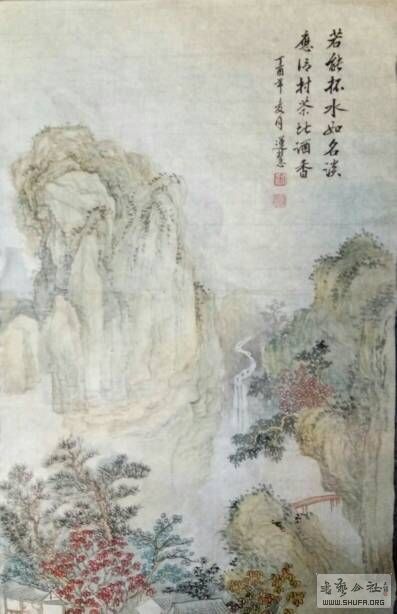 若能杯水如名淡
應信村茶比酒香
丁酉年
月
書藝公社
WWW.SHUFA.ORG